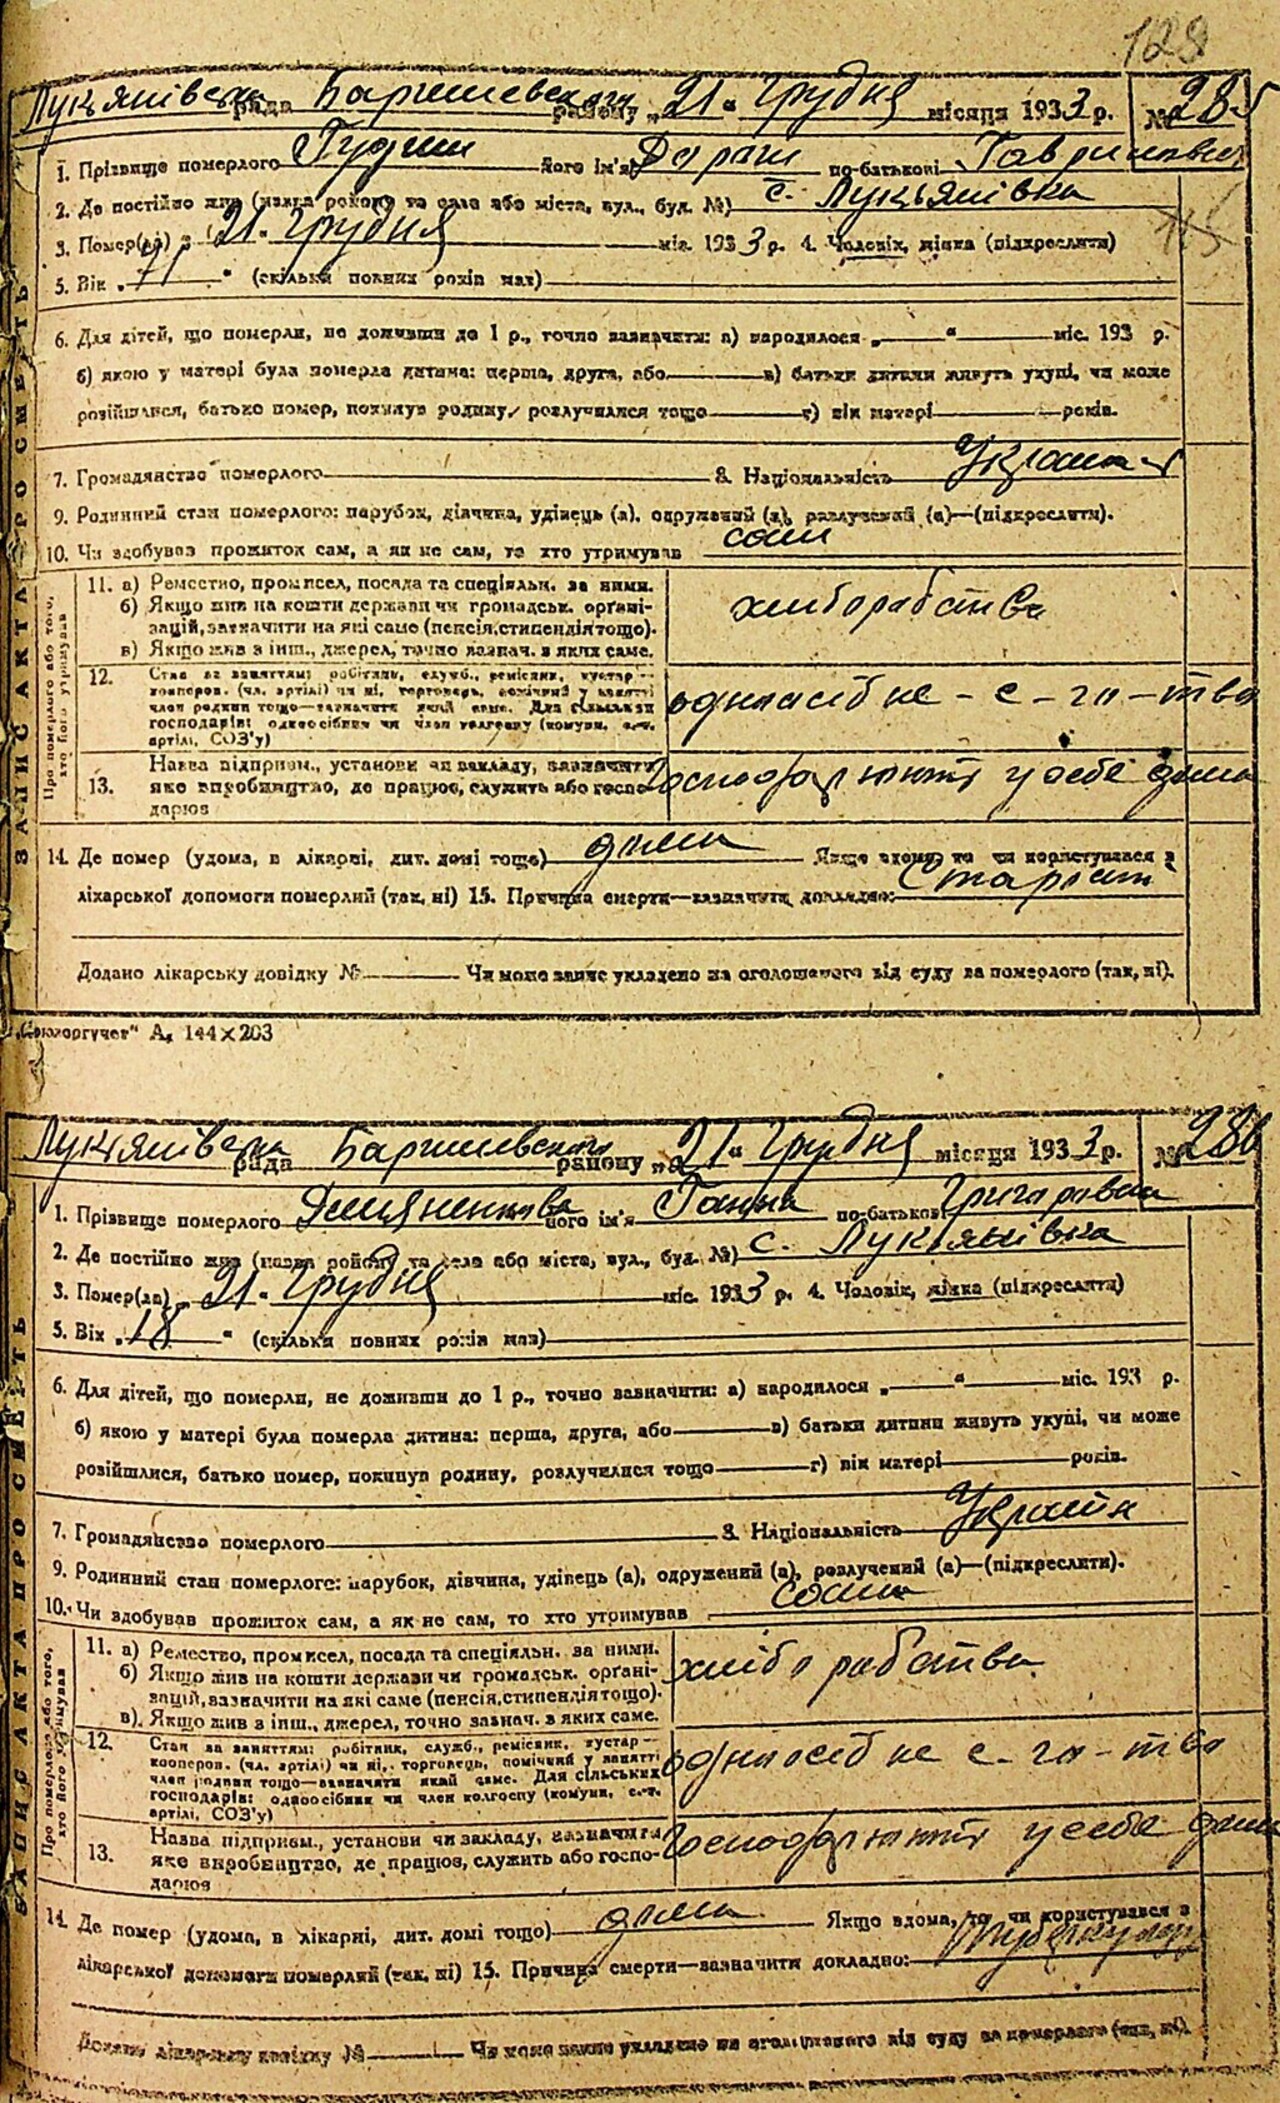 128
ЗАПИС АКТА ПРО СМЕРТЬ
Лукьянівська рада Баришевського району „21“ Грудня місяця 1933 р. № 285
1. Прізвище померлого його ім'я по-батькові
2. Де постійно жив (назва району та села або міста, вул., буд. №) с. Лукьянівка
3. Помер(ла) „21“ Грудня міс. 1933 р. 4. Чоловік, жінка (підкреслити)
5. Вік „71“ (скільки повних років мав)
6. Для дітей, що померли, не доживши до 1 р., точно зазначити: а) народилося „ “ міс. 193 р.
б) якою у матері була померла дитина: перша, друга, або в) батьки дитини живуть укупі, чи може
розійшлися, батько помер, покинув родину, розлучилися тощо г) вік матері років.
7. Громадянство померлого 8. Національність
9. Родинний стан померлого: парубок, дівчина, удівець (а), одружений (а), розлучений (а)—(підкреслити).
10. Чи здобував прожиток сам, а як не сам, то хто утримував сам
Про померлого або того, хто його утримував
11. а) Ремество, промисел, посада та спеціяльн. за ними.
б) Якщо жив на кошти держави чи громадськ. орґані-
зацій, зазначити на які саме (пенсія, стипендія тощо).
в) Якщо жив з інш., джерел, точно зазнач. з яких саме.
хліборобства
12. Стан за заняттям: робітник, служб., ремісник, кустар—
кооперов. (чл. артілі) чи ні, торговець, помічний у занятті
член родини тощо—зазначити який саме. Для сільських
господарів: одноосібник чи член колгоспу (комуни, с.-г.
артілі, СОЗ'у)
одноосібне с-го-тво
13. Назва підприєм., установи чи закладу, зазначити
яке виробництво, де працює, служить або госпо-
дарює
у себе дома
14. Де помер (удома, в лікарні, дит. домі тощо) дома Якщо вдома, то чи користувався з
лікарської допомоги померлий (так, ні) 15. Причина смерти—зазначити докладно:
Додано лікарську довідку № Чи може запис укладено на оголошеного від суду за померлого (так, ні).
„Союзоргучет“ А, 144×203
ЗАПИС АКТА ПРО СМЕРТЬ
Лукьянівська рада Баришевського району „21“ Грудня місяця 1933 р. № 286
1. Прізвище померлого його ім'я Ганна по-батькові
2. Де постійно жив (назва району та села або міста, вул., буд. №) с. Лукьянівка
3. Помер(ла) „21“ Грудня міс. 1933 р. 4. Чоловік, жінка (підкреслити)
5. Вік „18“ (скільки повних років мав)
6. Для дітей, що померли, не доживши до 1 р., точно зазначити: а) народилося „ “ міс. 193 р.
б) якою у матері була померла дитина: перша, друга, або в) батьки дитини живуть укупі, чи може
розійшлися, батько помер, покинув родину, розлучилися тощо г) вік матері років.
7. Громадянство померлого 8. Національність
9. Родинний стан померлого: парубок, дівчина, удівець (а), одружений (а), розлучений (а)—(підкреслити).
10. Чи здобував прожиток сам, а як не сам, то хто утримував сама
Про померлого або того, хто його утримував
11. а) Ремество, промисел, посада та спеціяльн. за ними.
б) Якщо жив на кошти держави чи громадськ. орґані-
зацій, зазначити на які саме (пенсія, стипендія тощо).
в). Якщо жив з інш., джерел, точно зазнач. з яких саме.
хліборобства
12. Стан за заняттям: робітник, служб., ремісник, кустар—
кооперов. (чл. артілі) чи ні, торговець, помічний у занятті
член родини тощо—зазначити який саме. Для сільських
господарів: одноосібник чи член колгоспу (комуни, с.-г.
артілі, СОЗ'у)
одноосібне с-го-тво
13. Назва підприєм., установи чи закладу, зазначити
яке виробництво, де працює, служить або госпо-
дарює
у себе дома
14. Де помер (удома, в лікарні, дит. домі тощо) дома Якщо вдома, то чи користувався з
лікарської допомоги померлий (так, ні) 15. Причина смерти—зазначити докладно:
Додано лікарську довідку № Чи може запис укладено на оголошеного від суду за померлого (так, ні).